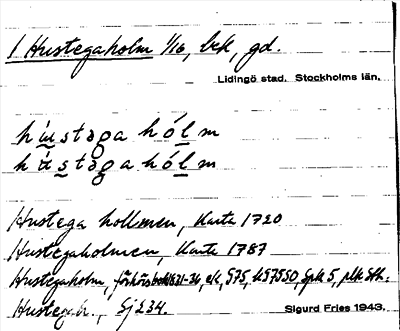 1 Hustegaholm 1/16, bek, gd.
Lidingö stad. Stockholms län.
hústəga hólm
hástəga hólm
Hustega hollmen, Karta 1720
Hustegaholmen, Karta 1787
Hustegaholm, förhörsbok 1831-36, ek, G75, plk Sth.
Hustega h., Sj 234.
Sigurd Fries 1943.